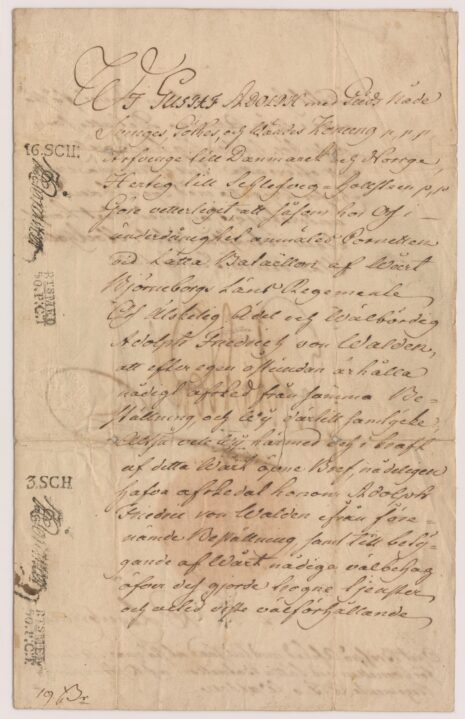 Wij GUSTAF ADOLPH med Guds Nåde
Sveriges Göthes och Wendes Konung p, p, p
Arfvinge till Dannmarck och Norrige,
Hertig till Schlesvig-Hollstein p, p
Göre vetterligit att såsom hos Oss i
underdånighet anmälts Cornetten
vid Lätta Bataillon af Wårt
Björneborgs Läns Regemente
Oss Älskelig Ädel och Wälbördig
Adolph Fredrich von Walden,
att efter egen åstundan erhålla
nådigt afsked från samma Be-
ställning och Wij därtill samtyckt,
Altså velle Wij härmed och i kraft
af detta Wårt öpne Bref, nådeligen
hafva afskedat honom Adolph
Fredric von Walden ifrån före-
nämde Beställning, samt till bety-
gande af Wårt nådiga välbehag
öfver dess gjorde trogne tjenster
och ved viste välförhållande
16.SCH.
RTSMED
50.P.C.T
3.SCH.
RTSMED
50.P.C.T.